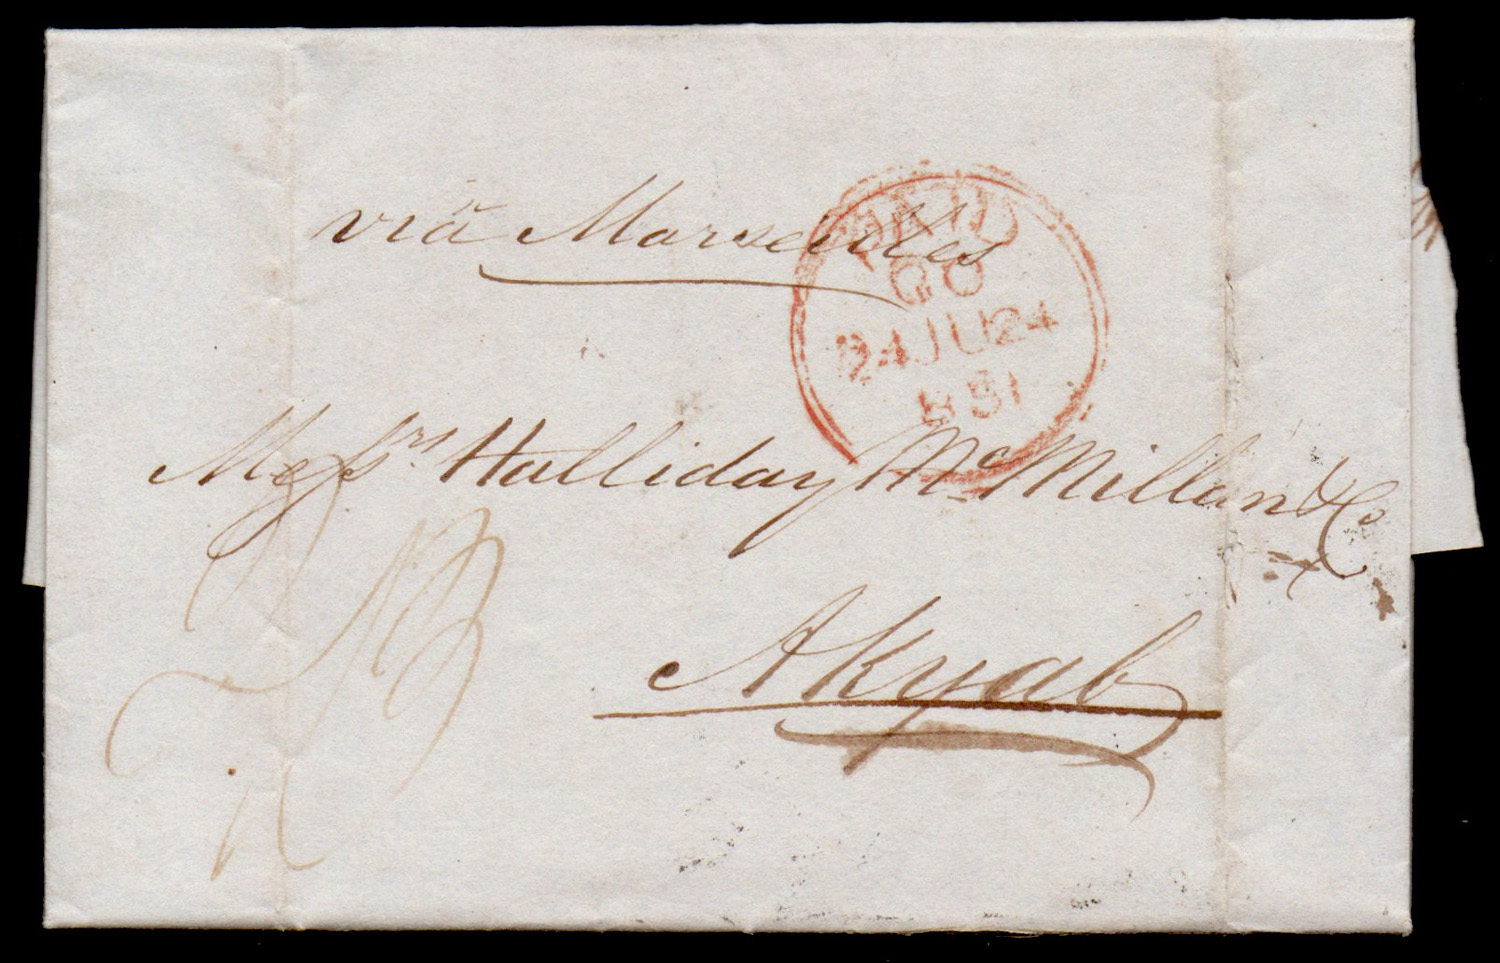 viâ Marseilles
PAID
QO
24 JU 24
1851
Messrs. Halliday McMillan & Co
Akyab